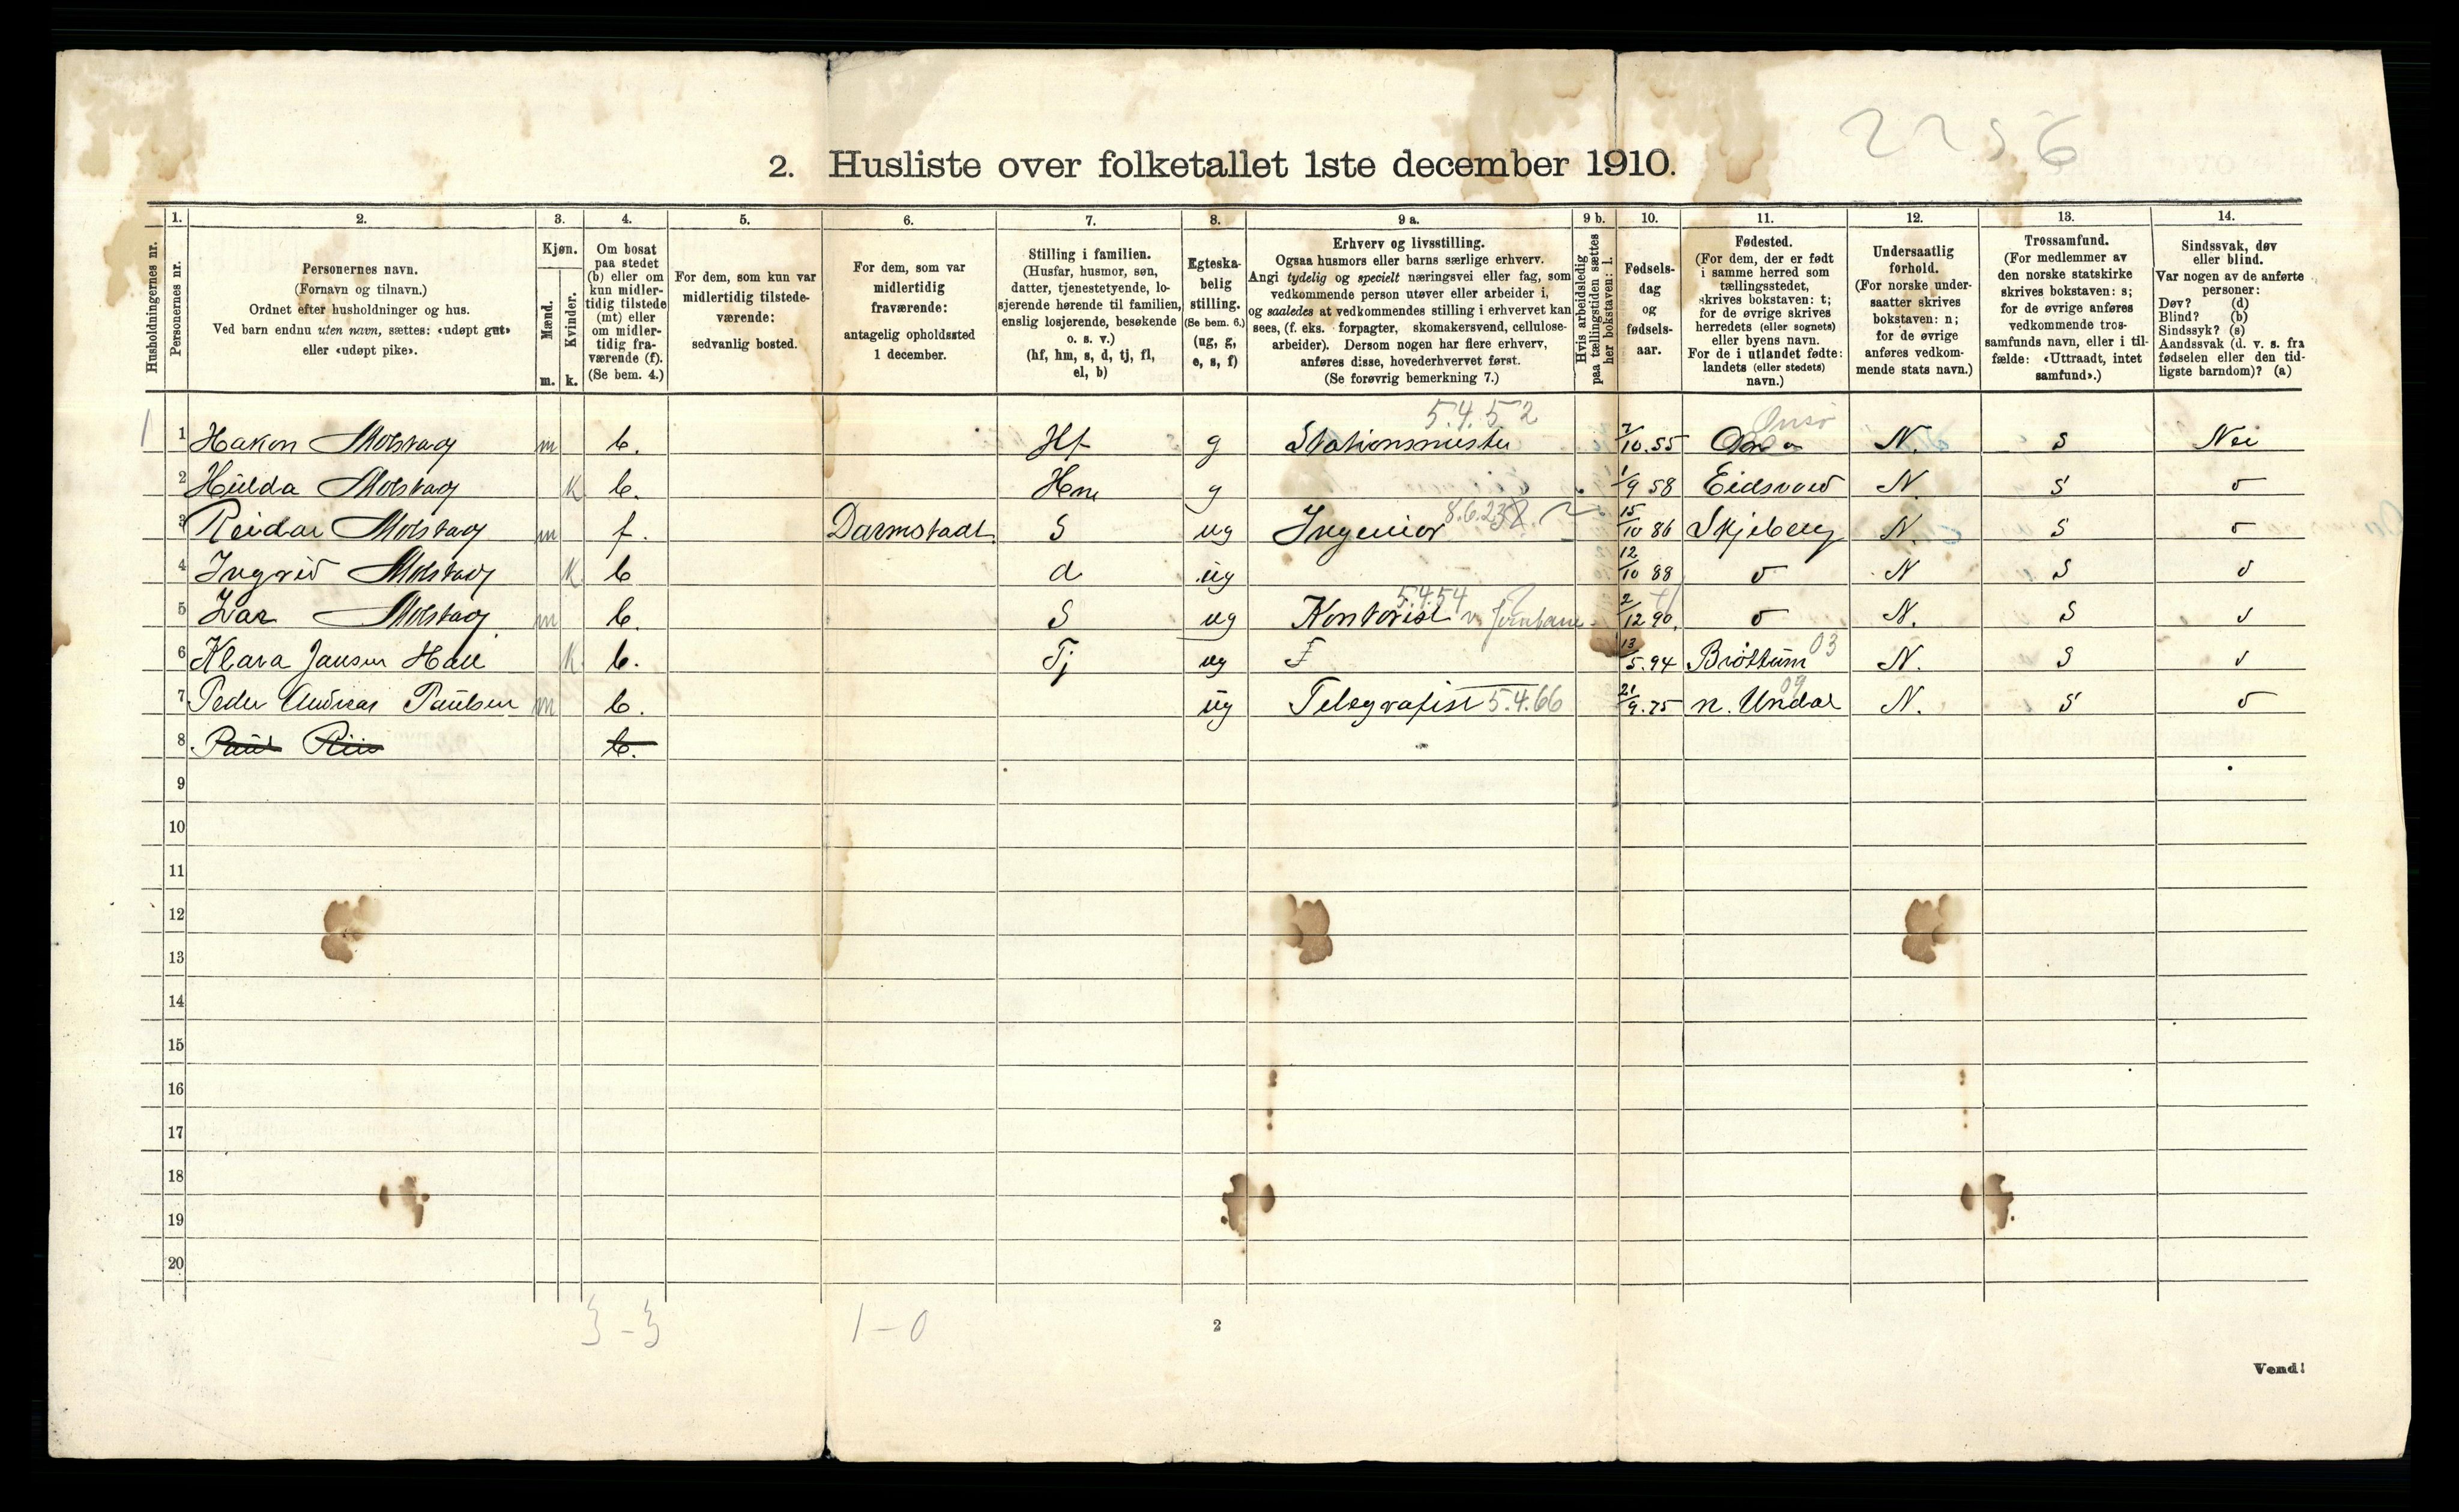 2256
2. Husliste over folketallet 1ste december 1910.
Husholdningernes nr.
1. Personernes nr.
2. Personernes navn.
(Fornavn og tilnavn.)
Ordnet efter husholdninger og hus.
Ved barn endnu uten navn, sættes: «udøpt gut»
eller «udøpt pike».
3. Kjøn.
Mænd. m.
Kvinder. k.
4. Om bosat
paa stedet
(b) eller om
kun midler-
tidig tilstede
(mt) eller
om midler-
tidig fra-
værende (f).
(Se bem. 4.)
5. For dem, som kun var
midlertidig tilstede-
værende:
sedvanlig bosted.
6. For dem, som var
midlertidig
fraværende:
antagelig opholdssted
1 december.
7. Stilling i familien.
(Husfar, husmor, søn,
datter, tjenestetyende, lo-
sjerende hørende til familien,
enslig losjerende, besøkende
o. s. v.)
(hf, hm, s, d, tj, fl,
el, b)
8. Egteska-
belig
stilling.
(Se bem. 6.)
(ug, g,
e, s, f)
9 a. Erhverv og livsstilling.
Ogsaa husmors eller barns særlige erhverv.
Angi tydelig og specielt næringsvei eller fag, som
vedkommende person utøver eller arbeider i,
og saaledes at vedkommendes stilling i erhvervet kan
sees, (f. eks. forpagter, skomakersvend, cellulose-
arbeider). Dersom nogen har flere erhverv,
anføres disse, hovederhvervet først.
(Se forøvrig bemerkning 7.)
9 b. Hvis arbeidsledig
paa tællingstiden sættes
her bokstaven: l.
10. Fødsels-
dag
og
fødsels-
aar.
11. Fødested.
(For dem, der er født
i samme herred som
tællingsstedet,
skrives bokstaven: t;
for de øvrige skrives
herredets (eller sognets)
eller byens navn.
For de i utlandet fødte:
landets (eller stedets)
navn.)
12. Undersaatlig
forhold.
(For norske under-
saatter skrives
bokstaven: n;
for de øvrige
anføres vedkom-
mende stats navn.)
13. Trossamfund.
(For medlemmer av
den norske statskirke
skrives bokstaven: s;
for de øvrige anføres
vedkommende tros-
samfunds navn, eller i til-
fælde: «Uttraadt, intet
samfund».)
14. Sindssvak, døv
eller blind.
Var nogen av de anførte
personer:
Døv? (d)
Blind? (b)
Sindssyk? (s)
Aandssvak (d. v. s. fra
fødselen eller den tid-
ligste barndom)? (a)
5.4.52 Onsø
1 1 Hakon Molstad m b. Hf g Stationsmester 7/10.55 N. S Nei
2 Hulda Molstad k b. Hm g 1/9 58 Eidsvold N. S o
3 Reidar Molstad m f. Darmstadt S ug Ingeniør 15/10 86 Skjeberg N. S o
4 Ingrid Molstad k b d ug 12/10 88 o N S o
5 Ivar Molstad m b. S ug Kontorist 5.4.54 v. Jernbane 2/12 90. o N. S o
6 Klara Jansen k b. Tj ug 13/5.94 Brøttum 03 N. S o
7 Peder Andreas Paulsen m b. ug Telegrafist 5.4.66 21/9.75 n. Undal 09 N. S o
8 b.
9
10
11
12
13
14
15
16
17
18
19
20
3-3 1-0
2
Vend!